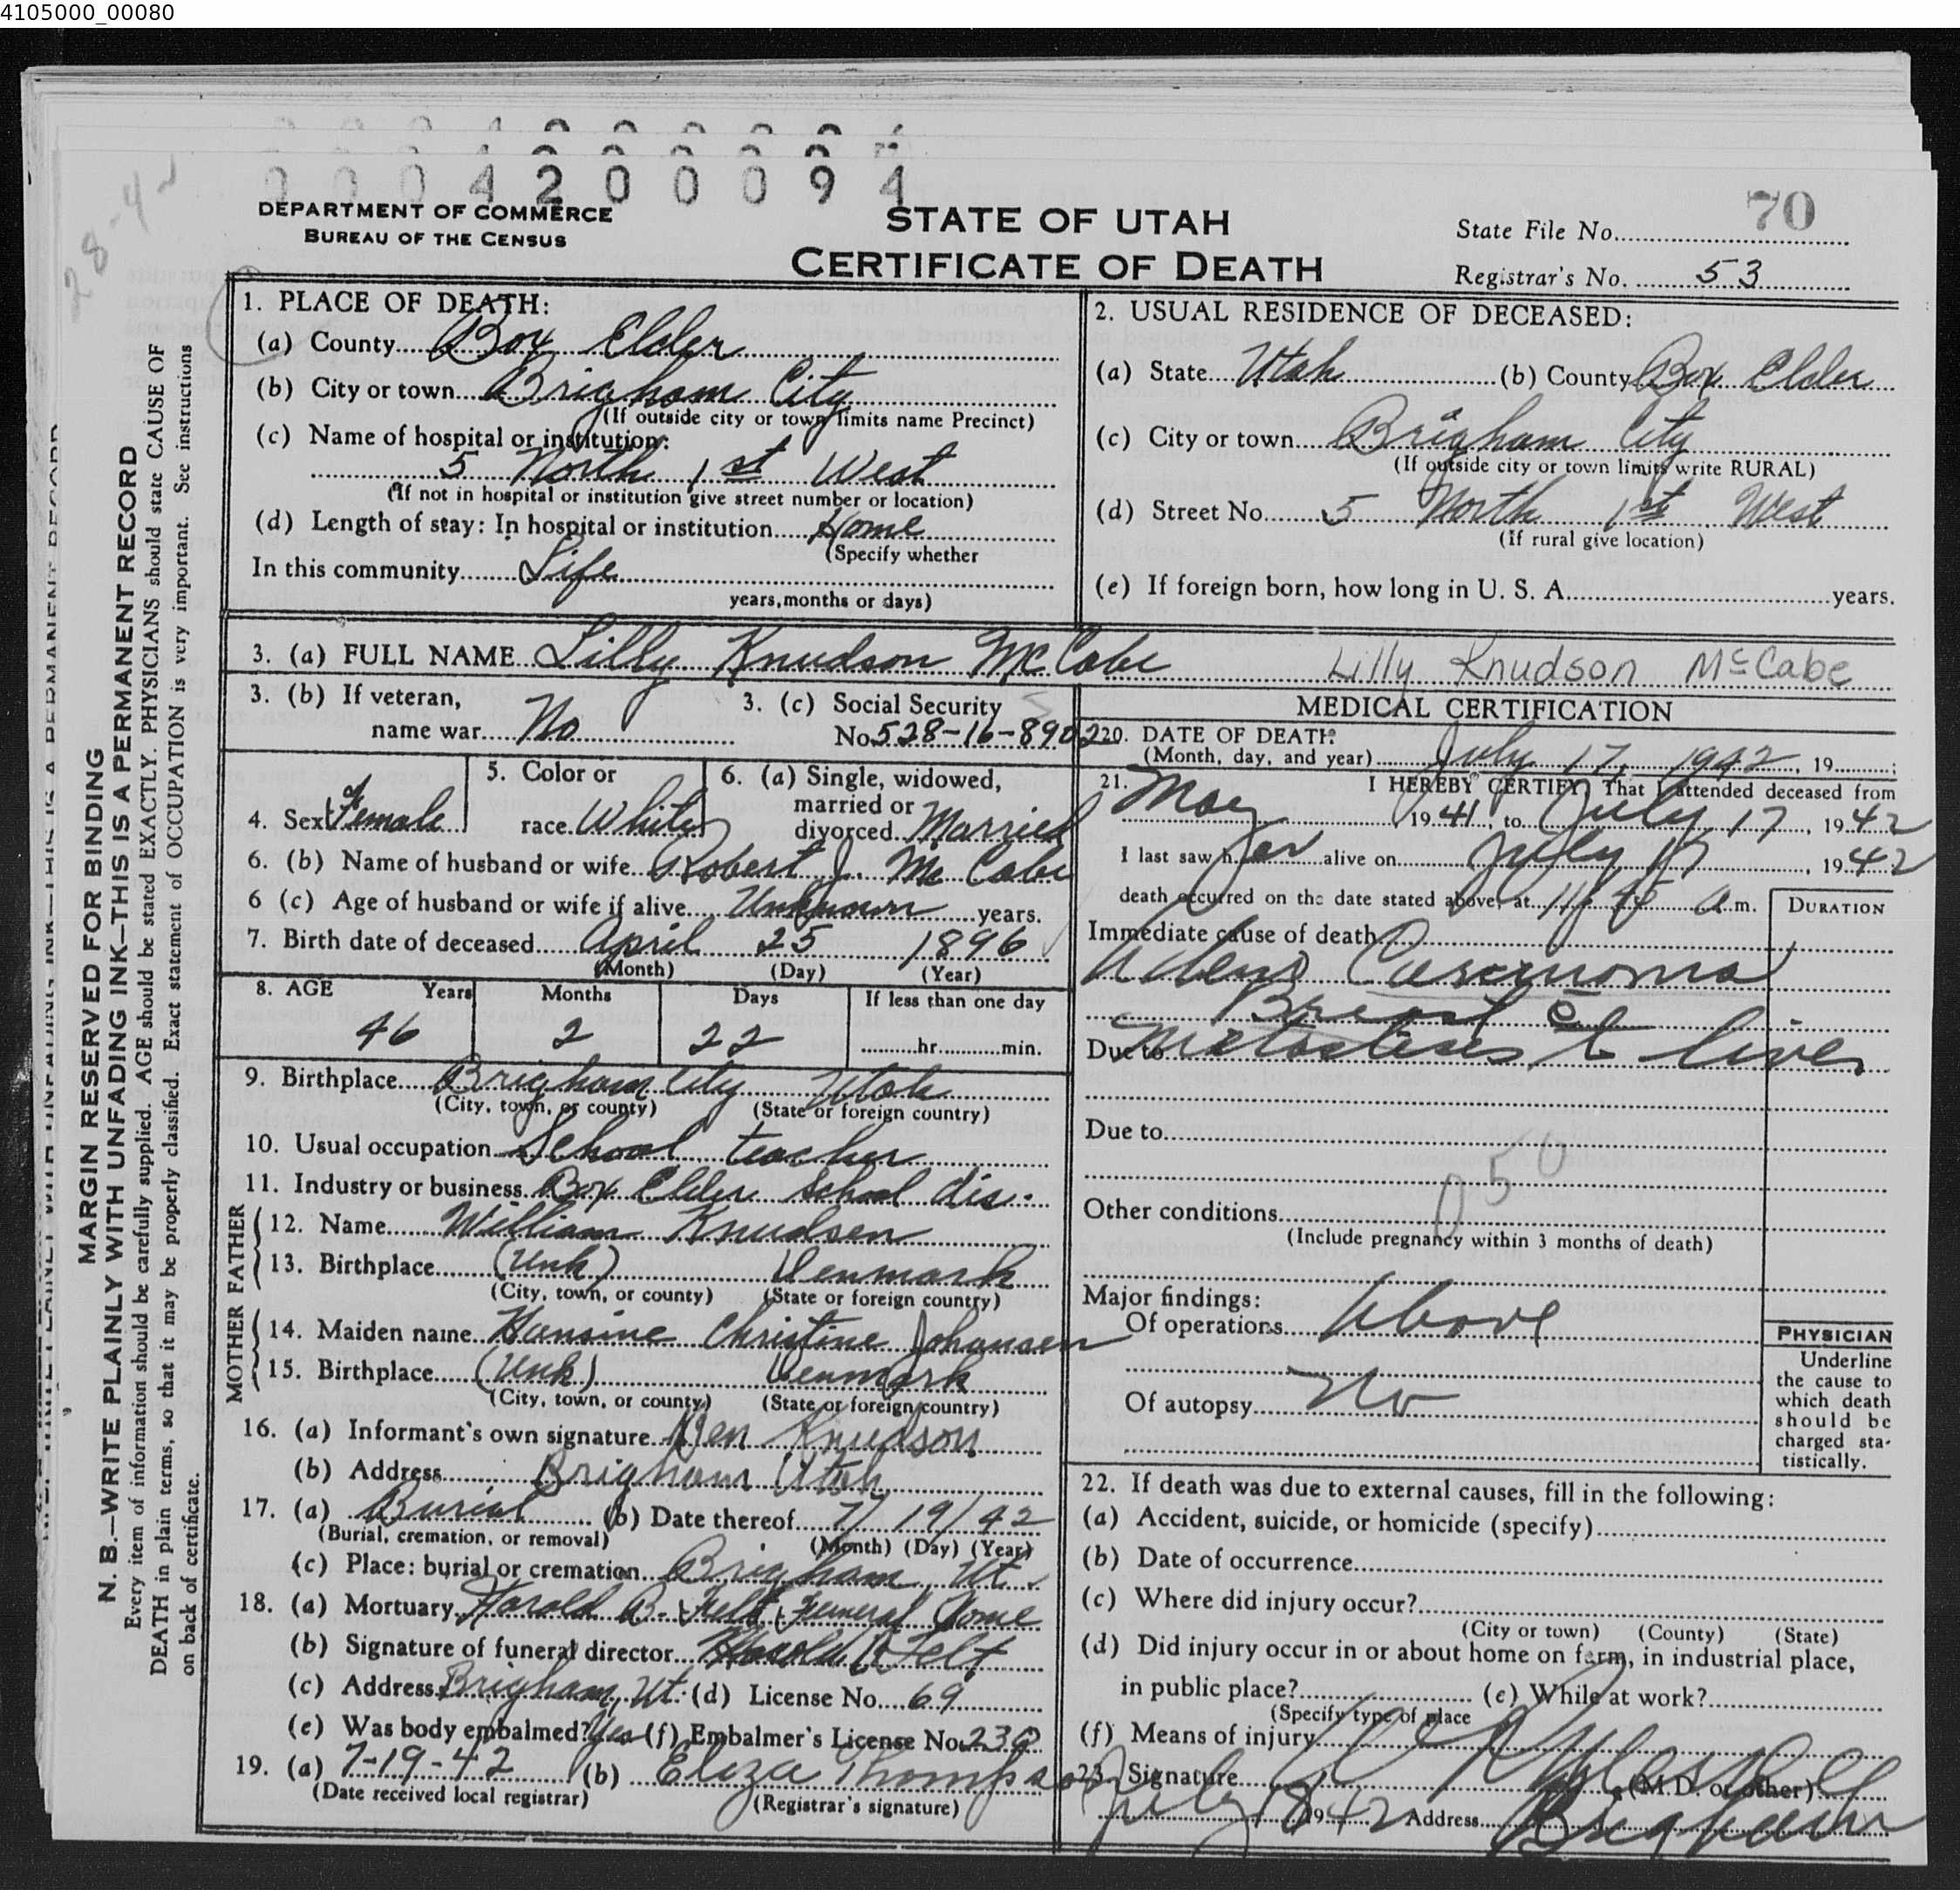 4105000_00080
28-42
0004200094
DEPARTMENT OF COMMERCE
BUREAU OF THE CENSUS
STATE OF UTAH
CERTIFICATE OF DEATH
70
State File No.
Registrar's No. 53
MARGIN RESERVED FOR BINDING
N. B.—WRITE PLAINLY WITH UNFADING INK—THIS IS A PERMANENT RECORD
Every item of information should be carefully supplied. AGE should be stated EXACTLY. PHYSICIANS should state CAUSE OF
DEATH in plain terms, so that it may be properly classified. Exact statement of OCCUPATION is very important. See instructions
on back of certificate.
1. PLACE OF DEATH:
(a) County Box Elder
(b) City or town Brigham City
(If outside city or town limits name Precinct)
(c) Name of hospital or institution:
5 North 1st West
(If not in hospital or institution give street number or location)
(d) Length of stay: In hospital or institution Home
(Specify whether
In this community Life
years, months or days)
2. USUAL RESIDENCE OF DECEASED:
(a) State Utah (b) County Box Elder
(c) City or town Brigham City
(If outside city or town limits write RURAL)
(d) Street No. 5 North 1st West
(If rural give location)
(e) If foreign born, how long in U. S. A. years.
3. (a) FULL NAME Lilly Knudson McCabe Lilly Knudson McCabe
3. (b) If veteran,
name war No
3. (c) Social Security
No. 528-16-8902
4. Sex Female
5. Color or
race White
6. (a) Single, widowed,
married or
divorced Married
6. (b) Name of husband or wife Robert J. McCabe
6 (c) Age of husband or wife if alive Unknown years.
7. Birth date of deceased April 25 1896
(Month) (Day) (Year)
8. AGE Years Months Days If less than one day
46 2 22 hr. min.
9. Birthplace Brigham City Utah
(City, town, or county) (State or foreign country)
10. Usual occupation School teacher
11. Industry or business Box Elder School dis.
FATHER
12. Name William Knudsen
13. Birthplace (Unk) Denmark
(City, town, or county) (State or foreign country)
MOTHER
14. Maiden name Hansine Christine Johansen
15. Birthplace (Unk) Denmark
(City, town, or county) (State or foreign country)
16. (a) Informant's own signature Knudson
(b) Address Brigham Utah
17. (a) Burial (b) Date thereof 7/19/42
(Burial, cremation, or removal) (Month) (Day) (Year)
(c) Place: burial or cremation Brigham, Ut.
18. (a) Mortuary Harold B. Felt Funeral Home
(b) Signature of funeral director Harold B Felt
(c) Address Brigham, Ut. (d) License No. 69
(e) Was body embalmed? Yes (f) Embalmer's License No. 230
19. (a) 7-19-42 (b) Eliza Thompson
(Date received local registrar) (Registrar's signature)
MEDICAL CERTIFICATION
20. DATE OF DEATH:
(Month, day, and year) July 17, 1942, 19 ;
21. I HEREBY CERTIFY, That I attended deceased from
May, 1941, to July 17, 1942
I last saw her alive on July 17, 1942
death occurred on the date stated above, at 11:45 a.m.
DURATION
Immediate cause of death
Adeno Carcinoma
Breast c̄
Due to Metastases to liver
Due to
050
Other conditions
(Include pregnancy within 3 months of death)
Major findings:
Of operations Above
Of autopsy No
PHYSICIAN
Underline
the cause to
which death
should be
charged sta-
tistically.
22. If death was due to external causes, fill in the following:
(a) Accident, suicide, or homicide (specify)
(b) Date of occurrence
(c) Where did injury occur?
(City or town) (County) (State)
(d) Did injury occur in or about home on farm, in industrial place,
in public place? (e) While at work?
(Specify type of place
(f) Means of injury
23. Signature (M.D. or other)
July 18 1942 Address Brigham